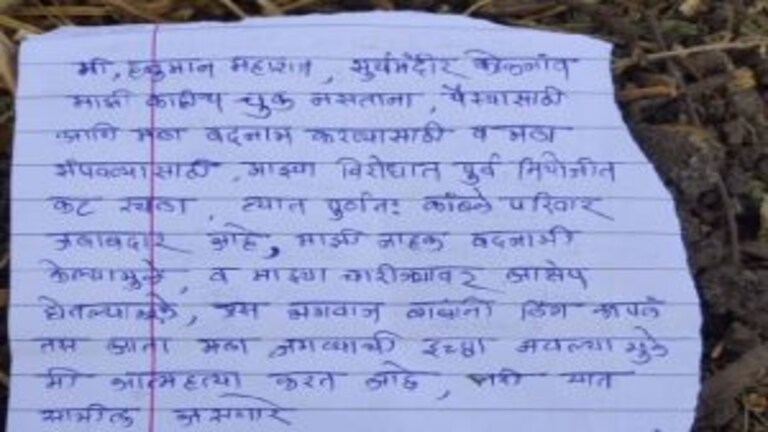 मी, हनुमान महाराज, सुर्यमंदीर कोळगांव
माझी काहीच चुक नसताना, पैश्यासाठी
आणि मला बदनाम करण्यासाठी व मला
संपवण्यासाठी, माझ्या विरोधात पुर्व नियोजीत
कट रचला, त्यात पुर्णतः कांबळे परिवार
जबाबदार आहे, माझी नाहक बदनामी
केल्यामुळे, व माझ्या चारीत्र्यावर आक्षेप
घेतल्यामुळे, जस भगवान बाबांनी लिंग कापले
तस आता मला जगण्याची इच्छा नसल्यामुळे
मी आत्महत्या करत आहे, तरी यात
सामील असणारे